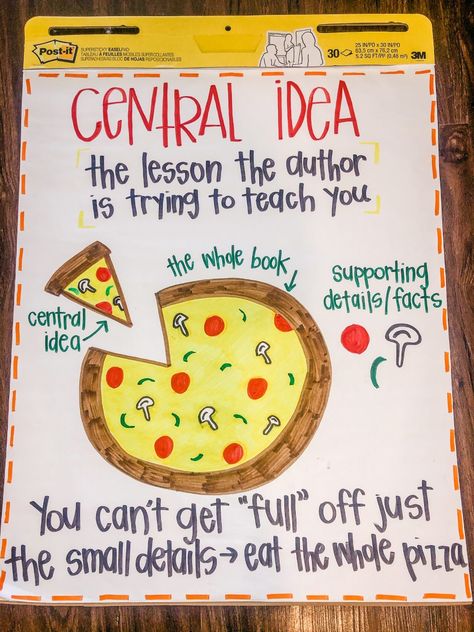 Post-it
SUPERSTICKY EASEL PAD
30
25 IN/PO x 30 IN/PO
63,5 cm x 76,2 cm
5.2 SQ FT/PI² (0,48 m²)
3M
CENTRAL IDEA
the lesson the author
is trying to teach you
the whole book
supporting
details/facts
central
idea
You can't get "full" off just
the small details → eat the whole pizza